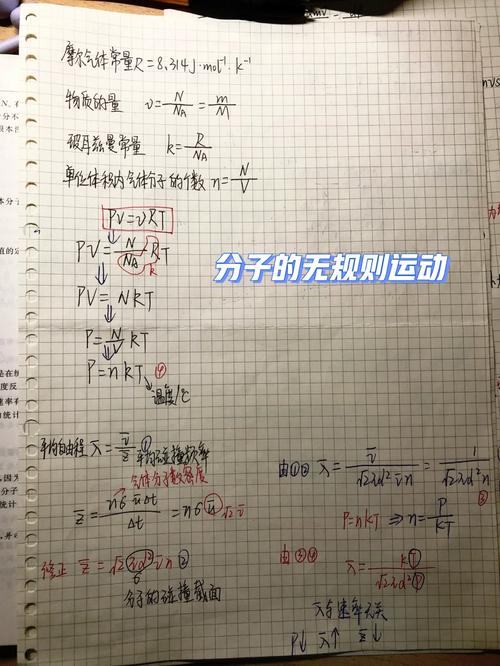 摩尔气体常量R=8.314J·mol⁻¹·k⁻¹
物质的量 ν=N/NA=m/M
玻耳兹曼常量 k=R/NA
单位体积内气体分子的个数n=N/V
PV=νRT
PV=N/NA·RT
k
分子的无规则运动
PV=NkT
P=N/V kT
P=nkT ④
温度/℃
平均自由程 λ̄=v̄/z̄ ①
平均碰撞频率
气体分子数密度
z̄=nσūΔt/Δt=nσū √2v̄
修正 z̄=√2πd²v̄n ②
σ
分子的碰撞截面
由①② λ̄=v̄/√2πd²v̄n=1/√2πd²n
③
P=nkT⇒n=P/kT
由③④ λ̄=kT/√2πd²P
λ̄与速率无关
P↓ λ̄↑ z̄↓